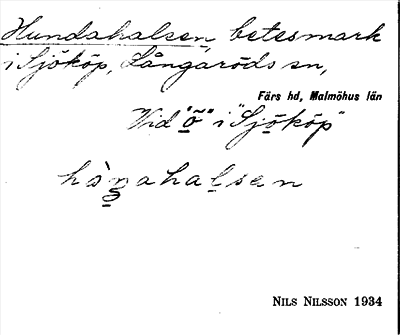 Hundahalsen, betesmark
i Sjököp, Långaröds sn,
Färs hd, Malmöhus län
Vid "ö" i "Sjököp"
hàn̰ahal̠sen
NILS NILSSON 1934